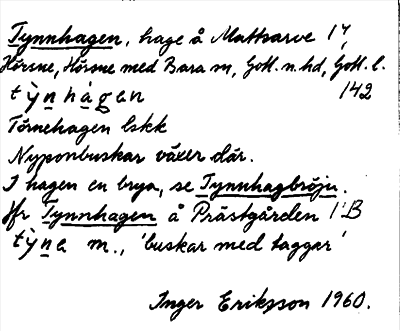 Tynnhagen, hage å Mattsarve 1⁴,
Hörsne, Hörsne med Bara sn, Gotl. n. hd, Gotl. l.
ty̆nhàgen 142
Törnehagen lskk
Nyponbuskar växer där.
I hagen en brya, se Tynnhagbröju.
Jfr Tynnhagen å Prästgården 1:B
ty̆na m., 'buskar med taggar'
Inger Eriksson 1960.